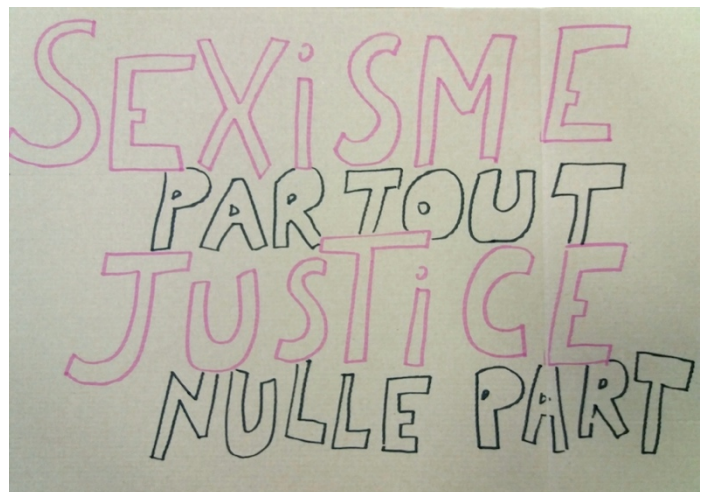 SEXiSME
PARTOUT
JUSTiCE
NULLE PART